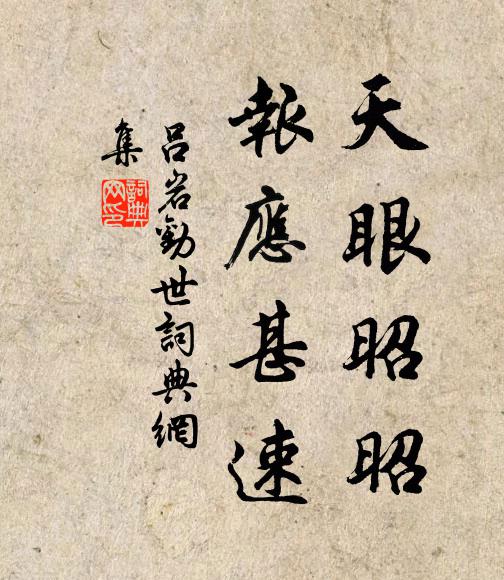 天眼昭昭
報應甚速
呂岩勸世詞典網
集
詞典
网印